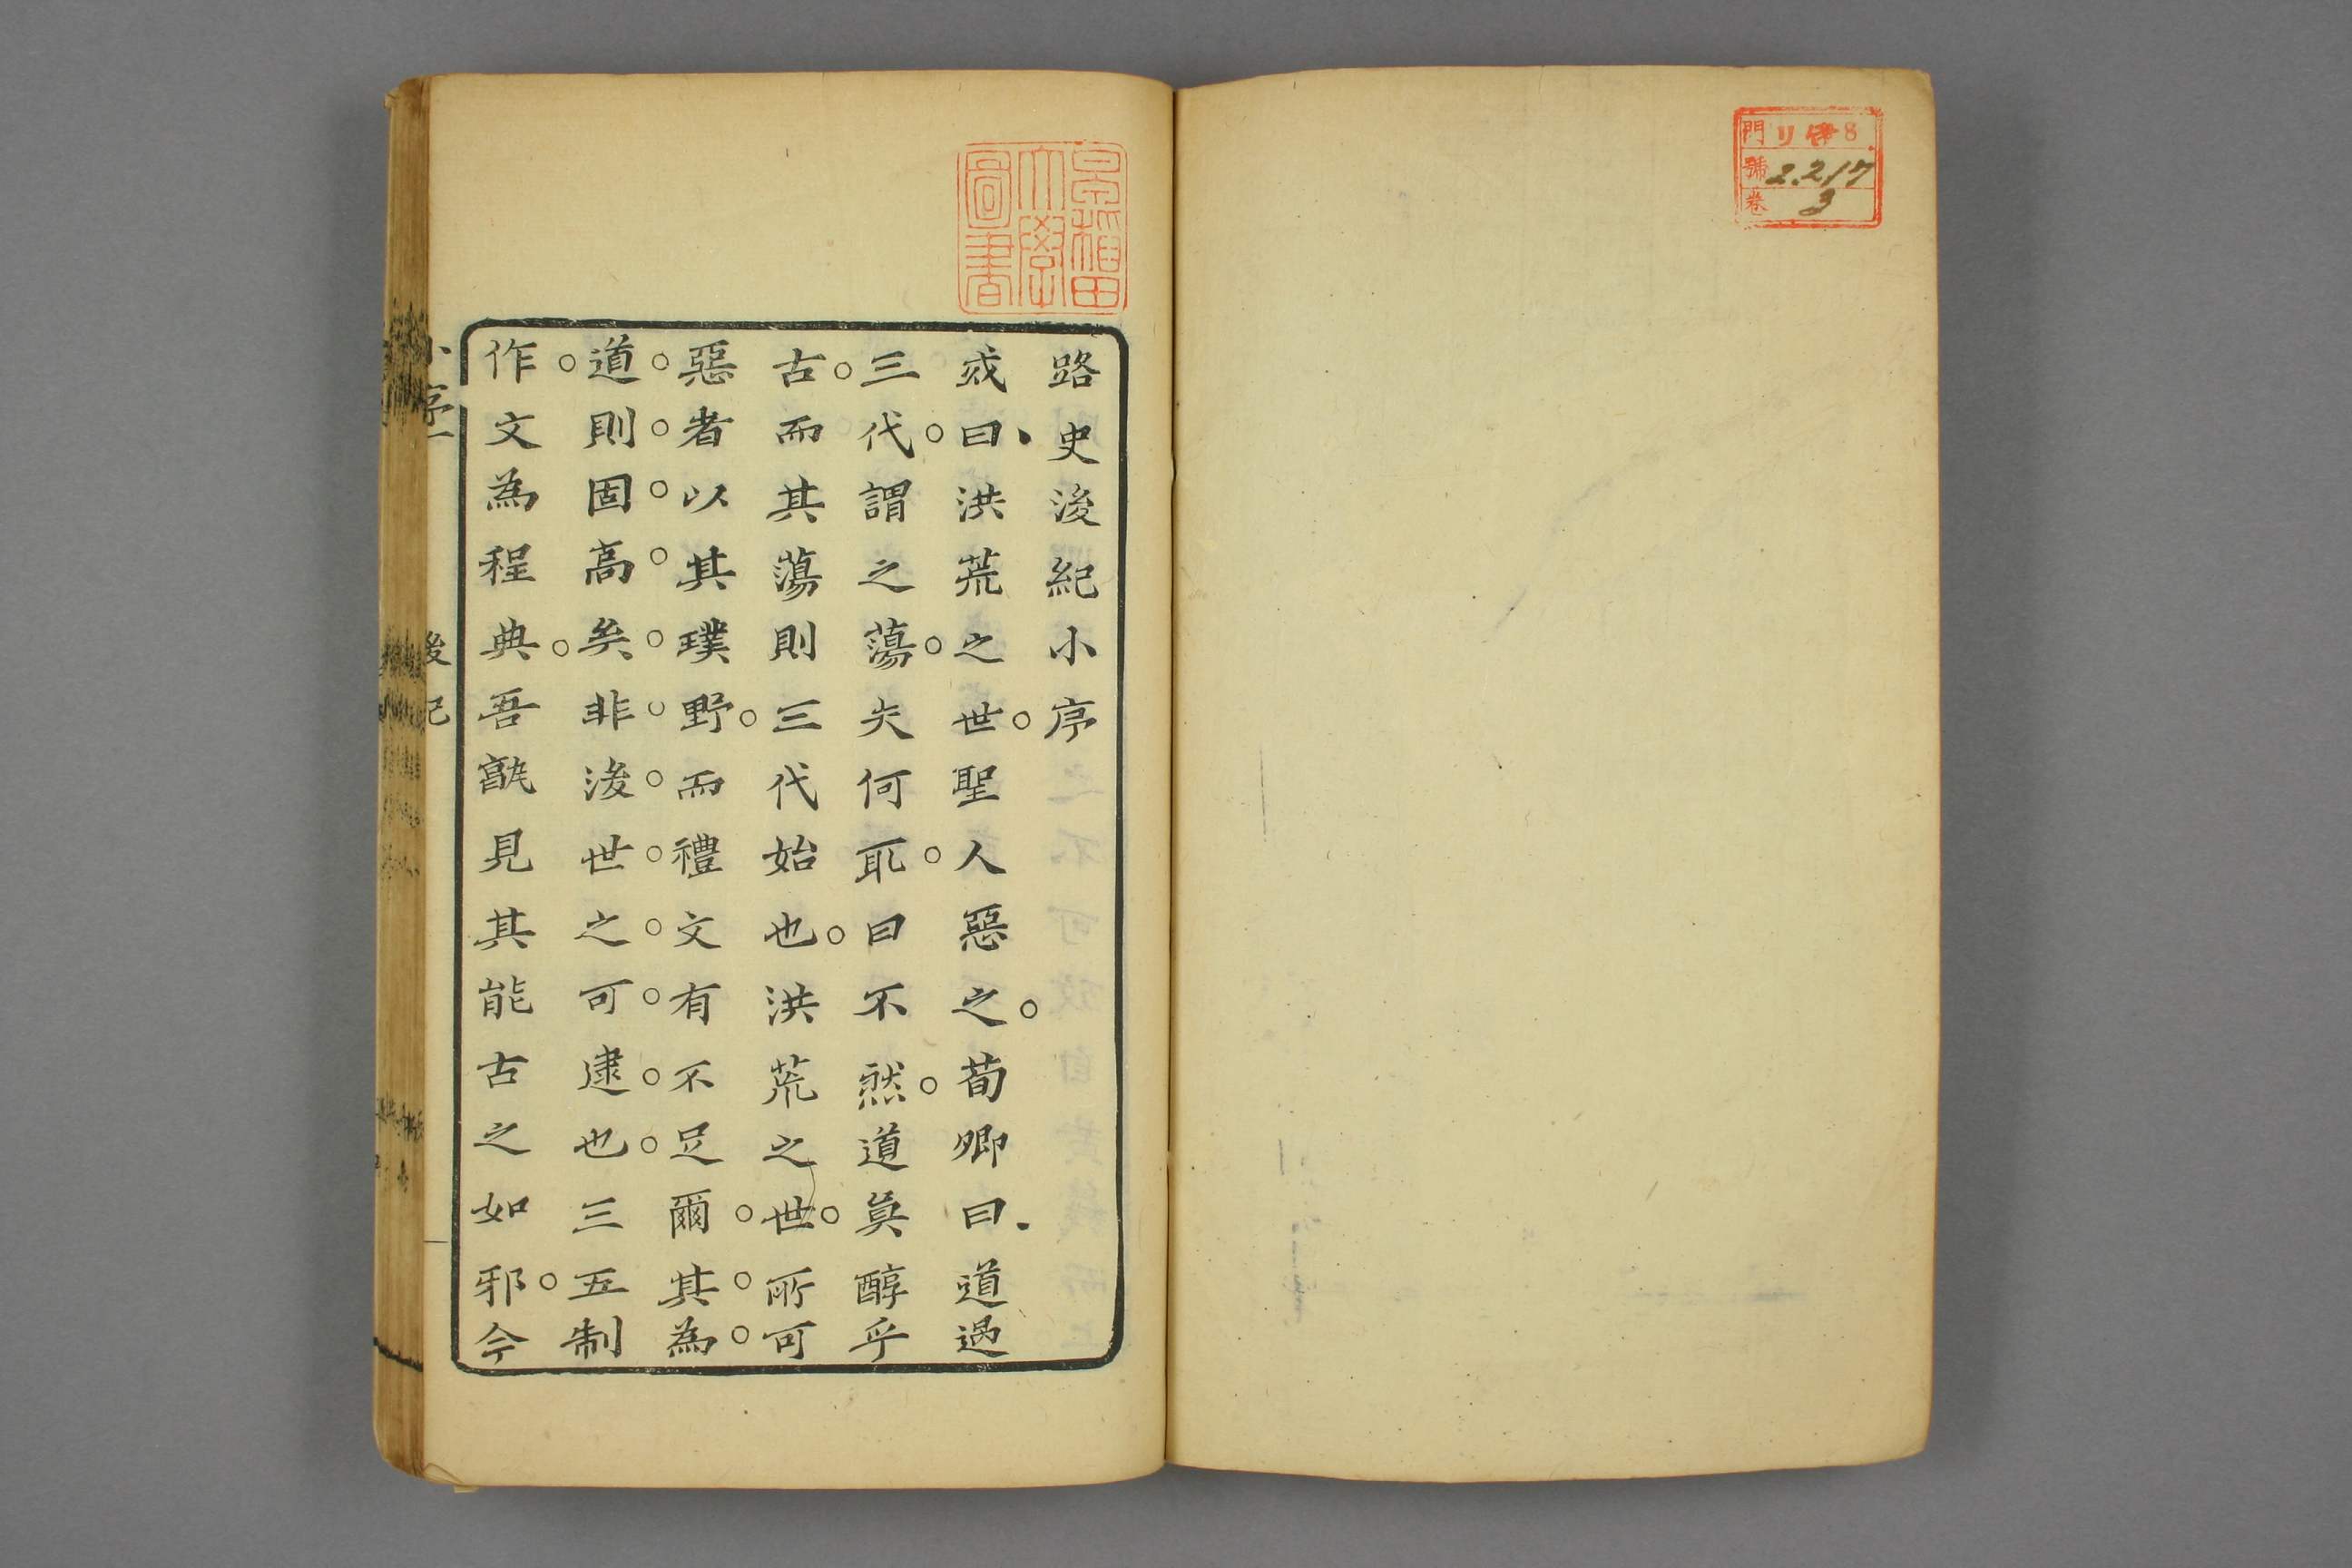 門 リ 8
號 2.217
卷 3
早稲田
大學
圖書
路史後紀小序
或曰洪荒之世聖人惡之荀卿曰道過
三代謂之蕩夫何耶曰不然道莫醇乎
古而其蕩則三代始也洪荒之世所可
惡者以其璞野而禮文有不足爾其為
道則固高矣非後世之可逮也三五制
作文為程典吾孰見其能古之如邪今
小序一
後紀